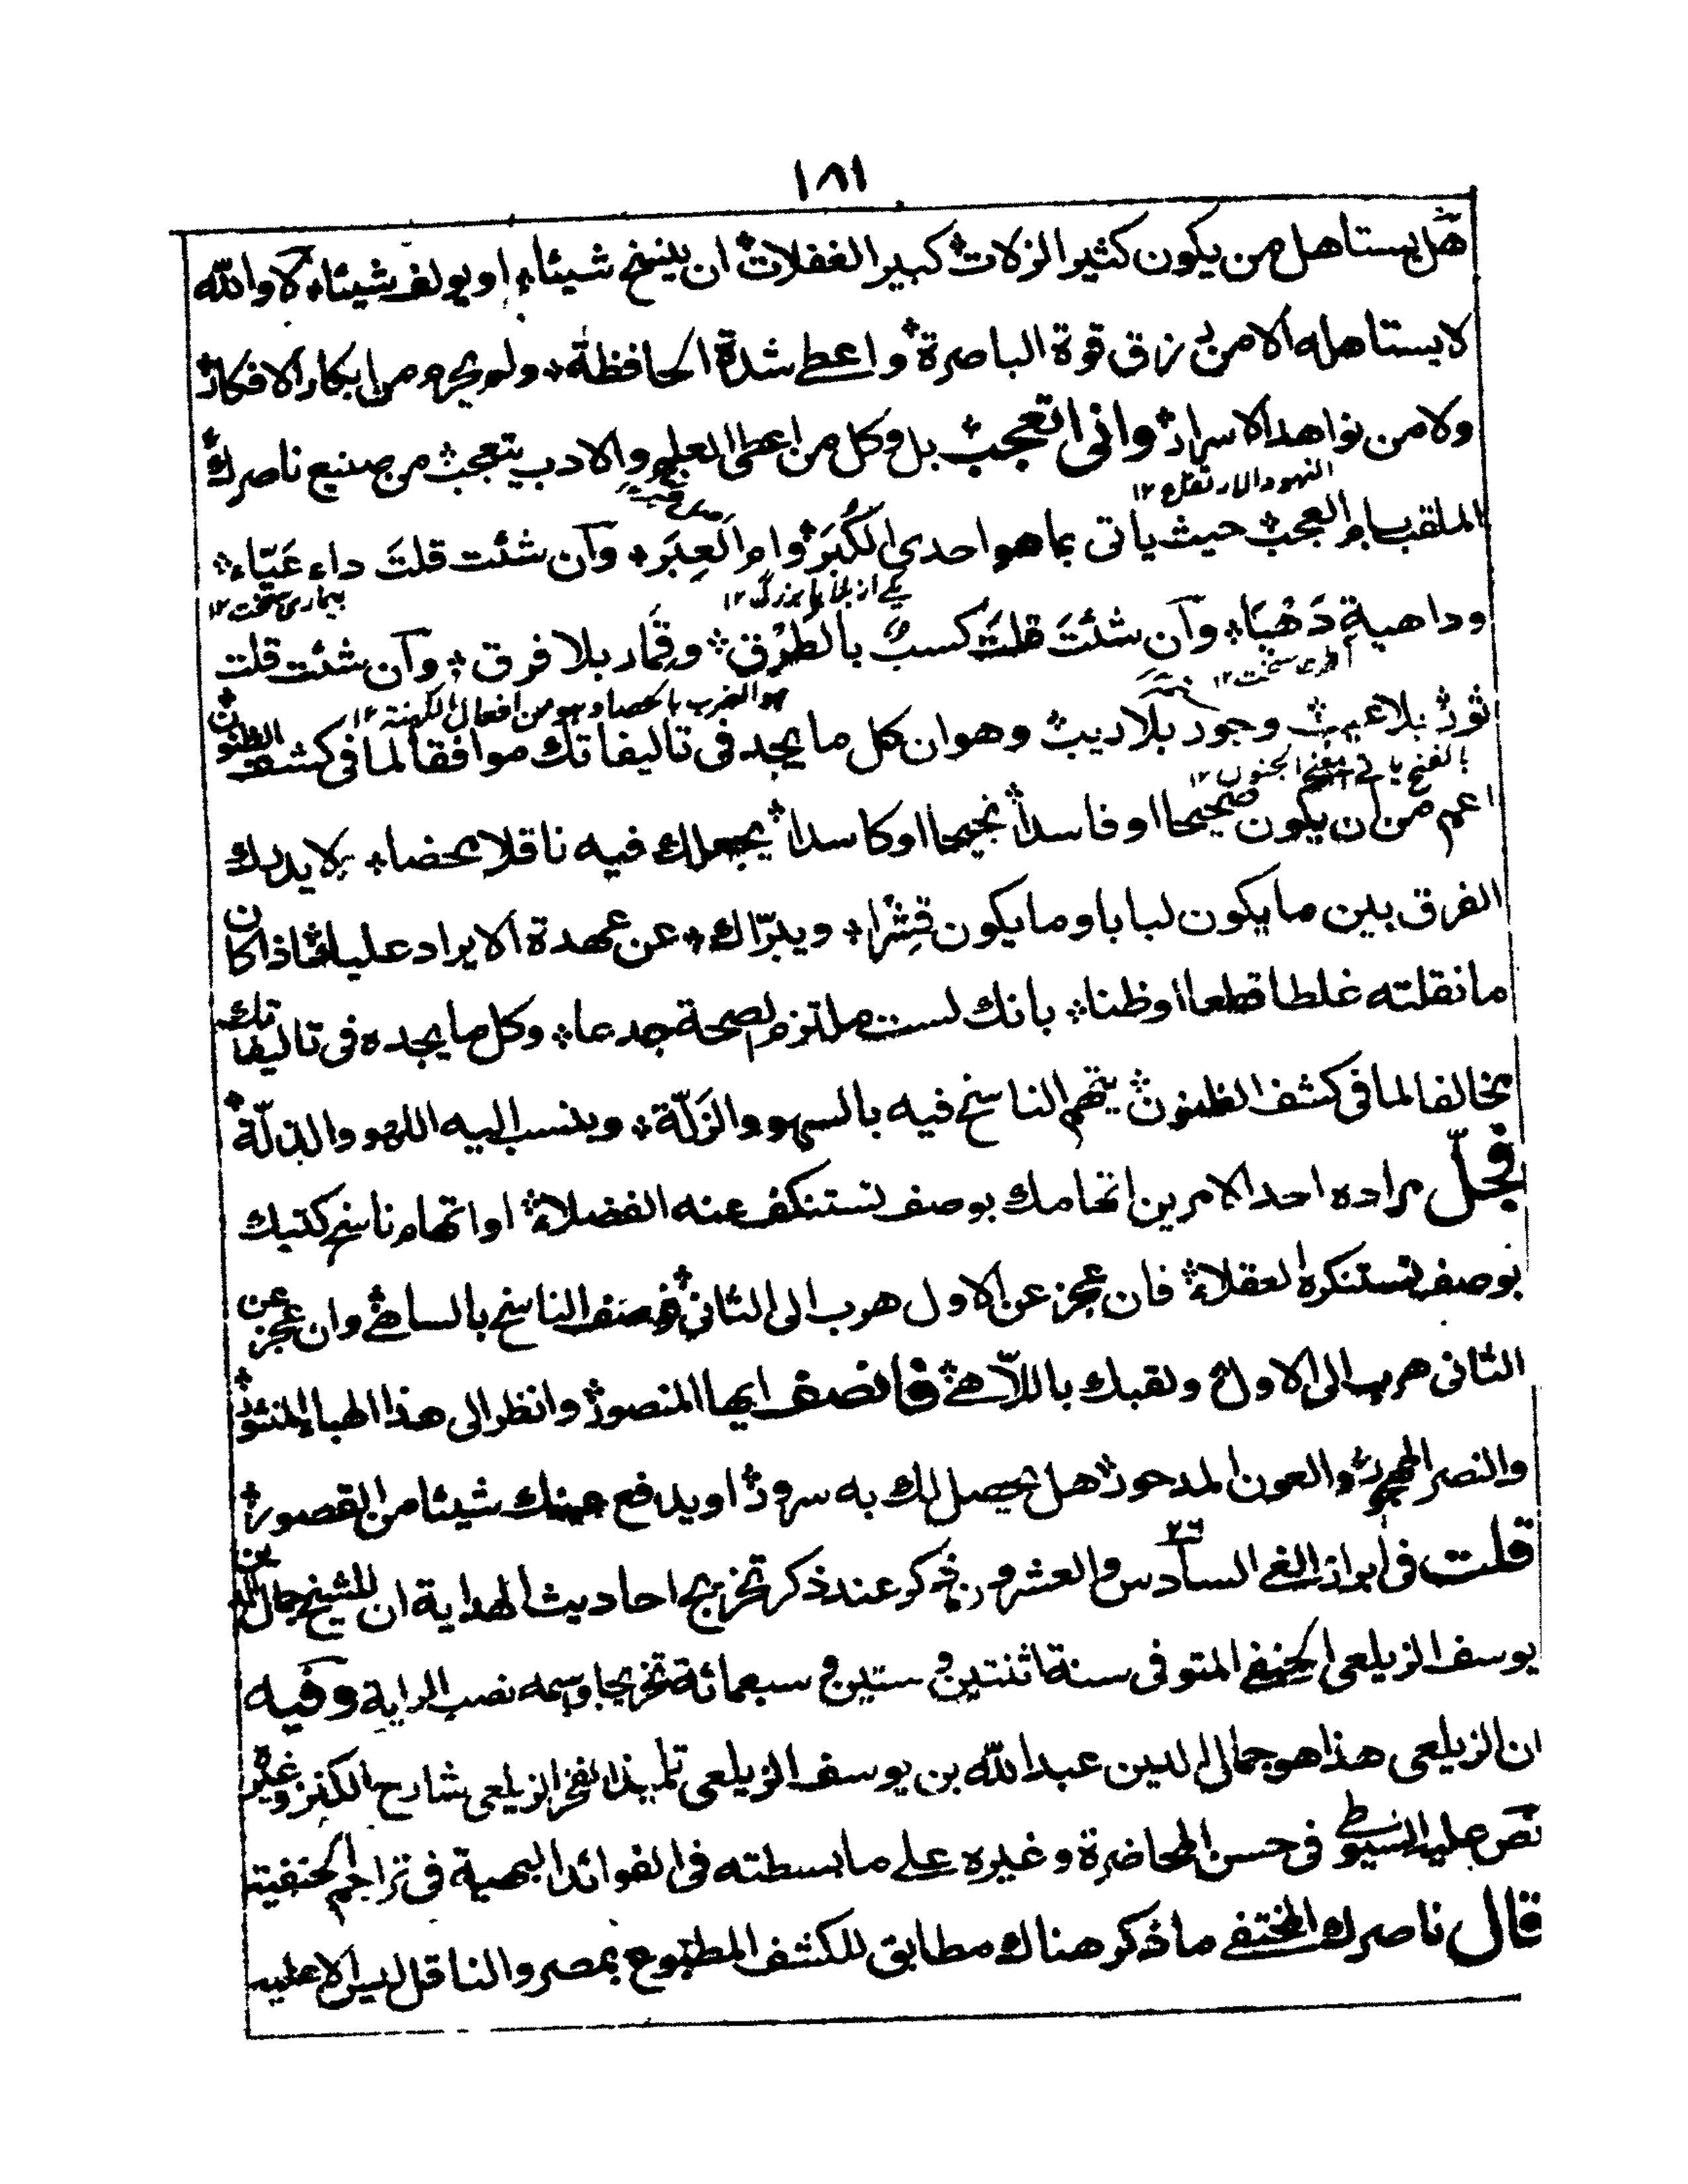 ١٨١
هل يستاهل من يكون كثير الزلات كبير الغفلات ان ينسخ شيئا او يولف شيئا كلا والله
لا يستاهله الا من رزق قوة الباصرة واعطے شدة الحافظة ولم يحرم من ابكار الافكار
ولا من نواهد الاسرار وانى اتعجب بل وكل من اعطى العلم والادب يتعجب من صنيع ناصرك
النهود الارتفاع ١٢
الملقب بابى العجب حيث ياتى بما هو احدى الكُبَر وام العِبَر وان شئت قلتَ داء عَيّاء
يكے از بلاہاے بزرگ ١٢
بيمارى سخت ١٢
وداهية دَهْيَا وان شئتَ قلتَ كسب بالطَرْق وقمار بلا فرق وان شئت قلت
سخت ١٢
هو الضرب بالحصا وهو من افعال الكهنة ١٢
ثور بلا عيب وجور بلا ريب وهو ان كل ما يجد فى تاليفاتك موافقا لما فى كشف الظنون
اعم من ان يكون صحيحا او فاسدا نجيحا او كاسدا يجعلك فيه ناقلا محضا لا يدرك
الفرق بين ما يكون لبابا وما يكون قِشْرا ويبرّاك عن عهدة الايراد عليك اذا كان
ما نقلته غلطا قطعا او ظنا بانك لست ملتزم لصحة جدعا وكل ما يجده فى تاليفاتك
مخالفا لما فى كشف الظنون يتهم الناسخ فيه بالسهو والزَلّة وينسب اليه اللهو والذلّة
فجلّ مراده احد الامرين اتهامك بوصف تستنكف عنه الفضلاء او اتهام ناسخ كتبك
بوصف تستنكره العقلاء فان عجز عن الاول هرب الى الثانى فوصف الناسخ بالساهے وان عجز عن
الثانى هرب الى الاول ولقبك باللاّهے فانصف ايها المنصور وانظر الى هذا الهباء المنثور
والنصر المهجور والعون المدحور هل يحصل لك به سرور او يدفع عنك شيئا من القصور
قلت فى ابراز الغے السادس والعشرون ٢٦ ذكر عند ذكر تخريج احاديث الهداية ان للشيخ جمال الدين
يوسف الزيلعى الحنفے المتوفى سنة اثنتين وستين وسبعمائة تخريجا واسمه نصب الراية وفيه
ان الزيلعى هذا هو جمال الدين عبد الله بن يوسف الزيلعى تلميذ الفخر الزيلعى شارح الكنز وغيره
نص عليه السيوطے فى حسن المحاضرة وغيره علے ما بسطته فى الفوائد البهية فى تراجم الحنفية
قال ناصرك المختفے ما ذكر هناك مطابق للكشف المطبوع بمصر والناقل ليس الا عليه